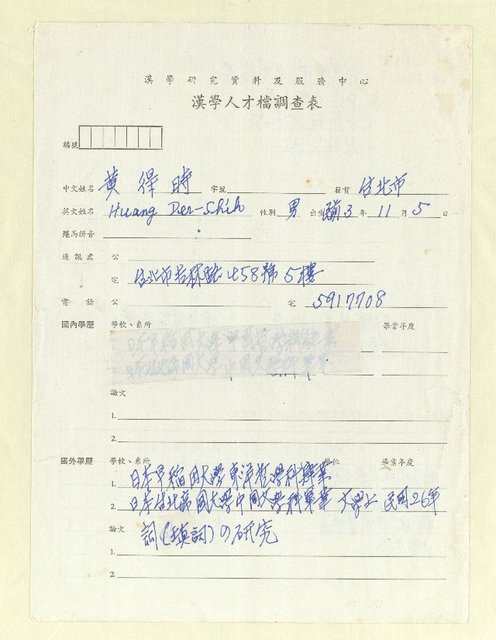 漢學研究資料及服務中心
漢學人才檔調查表
編號
中文姓名 黃得時 字號 籍貫 台北市
英文姓名 Huang Der-Shih 性別 男 出生 前3年11月5日
羅馬拼音
通訊處 公
宅 台北市吉林路458號5樓
電話 公 宅 5917708
國內學歷 學校、系所 畢業年度
論文
1.
2.
國外學歷 學校、系所 學位 畢業年度
1. 日本早稻田大學東洋哲學科肄業
2. 日本台北帝國大學中國文學科畢業 文學士 民國26年
論文 詞(填詞)の研究
1.
2.